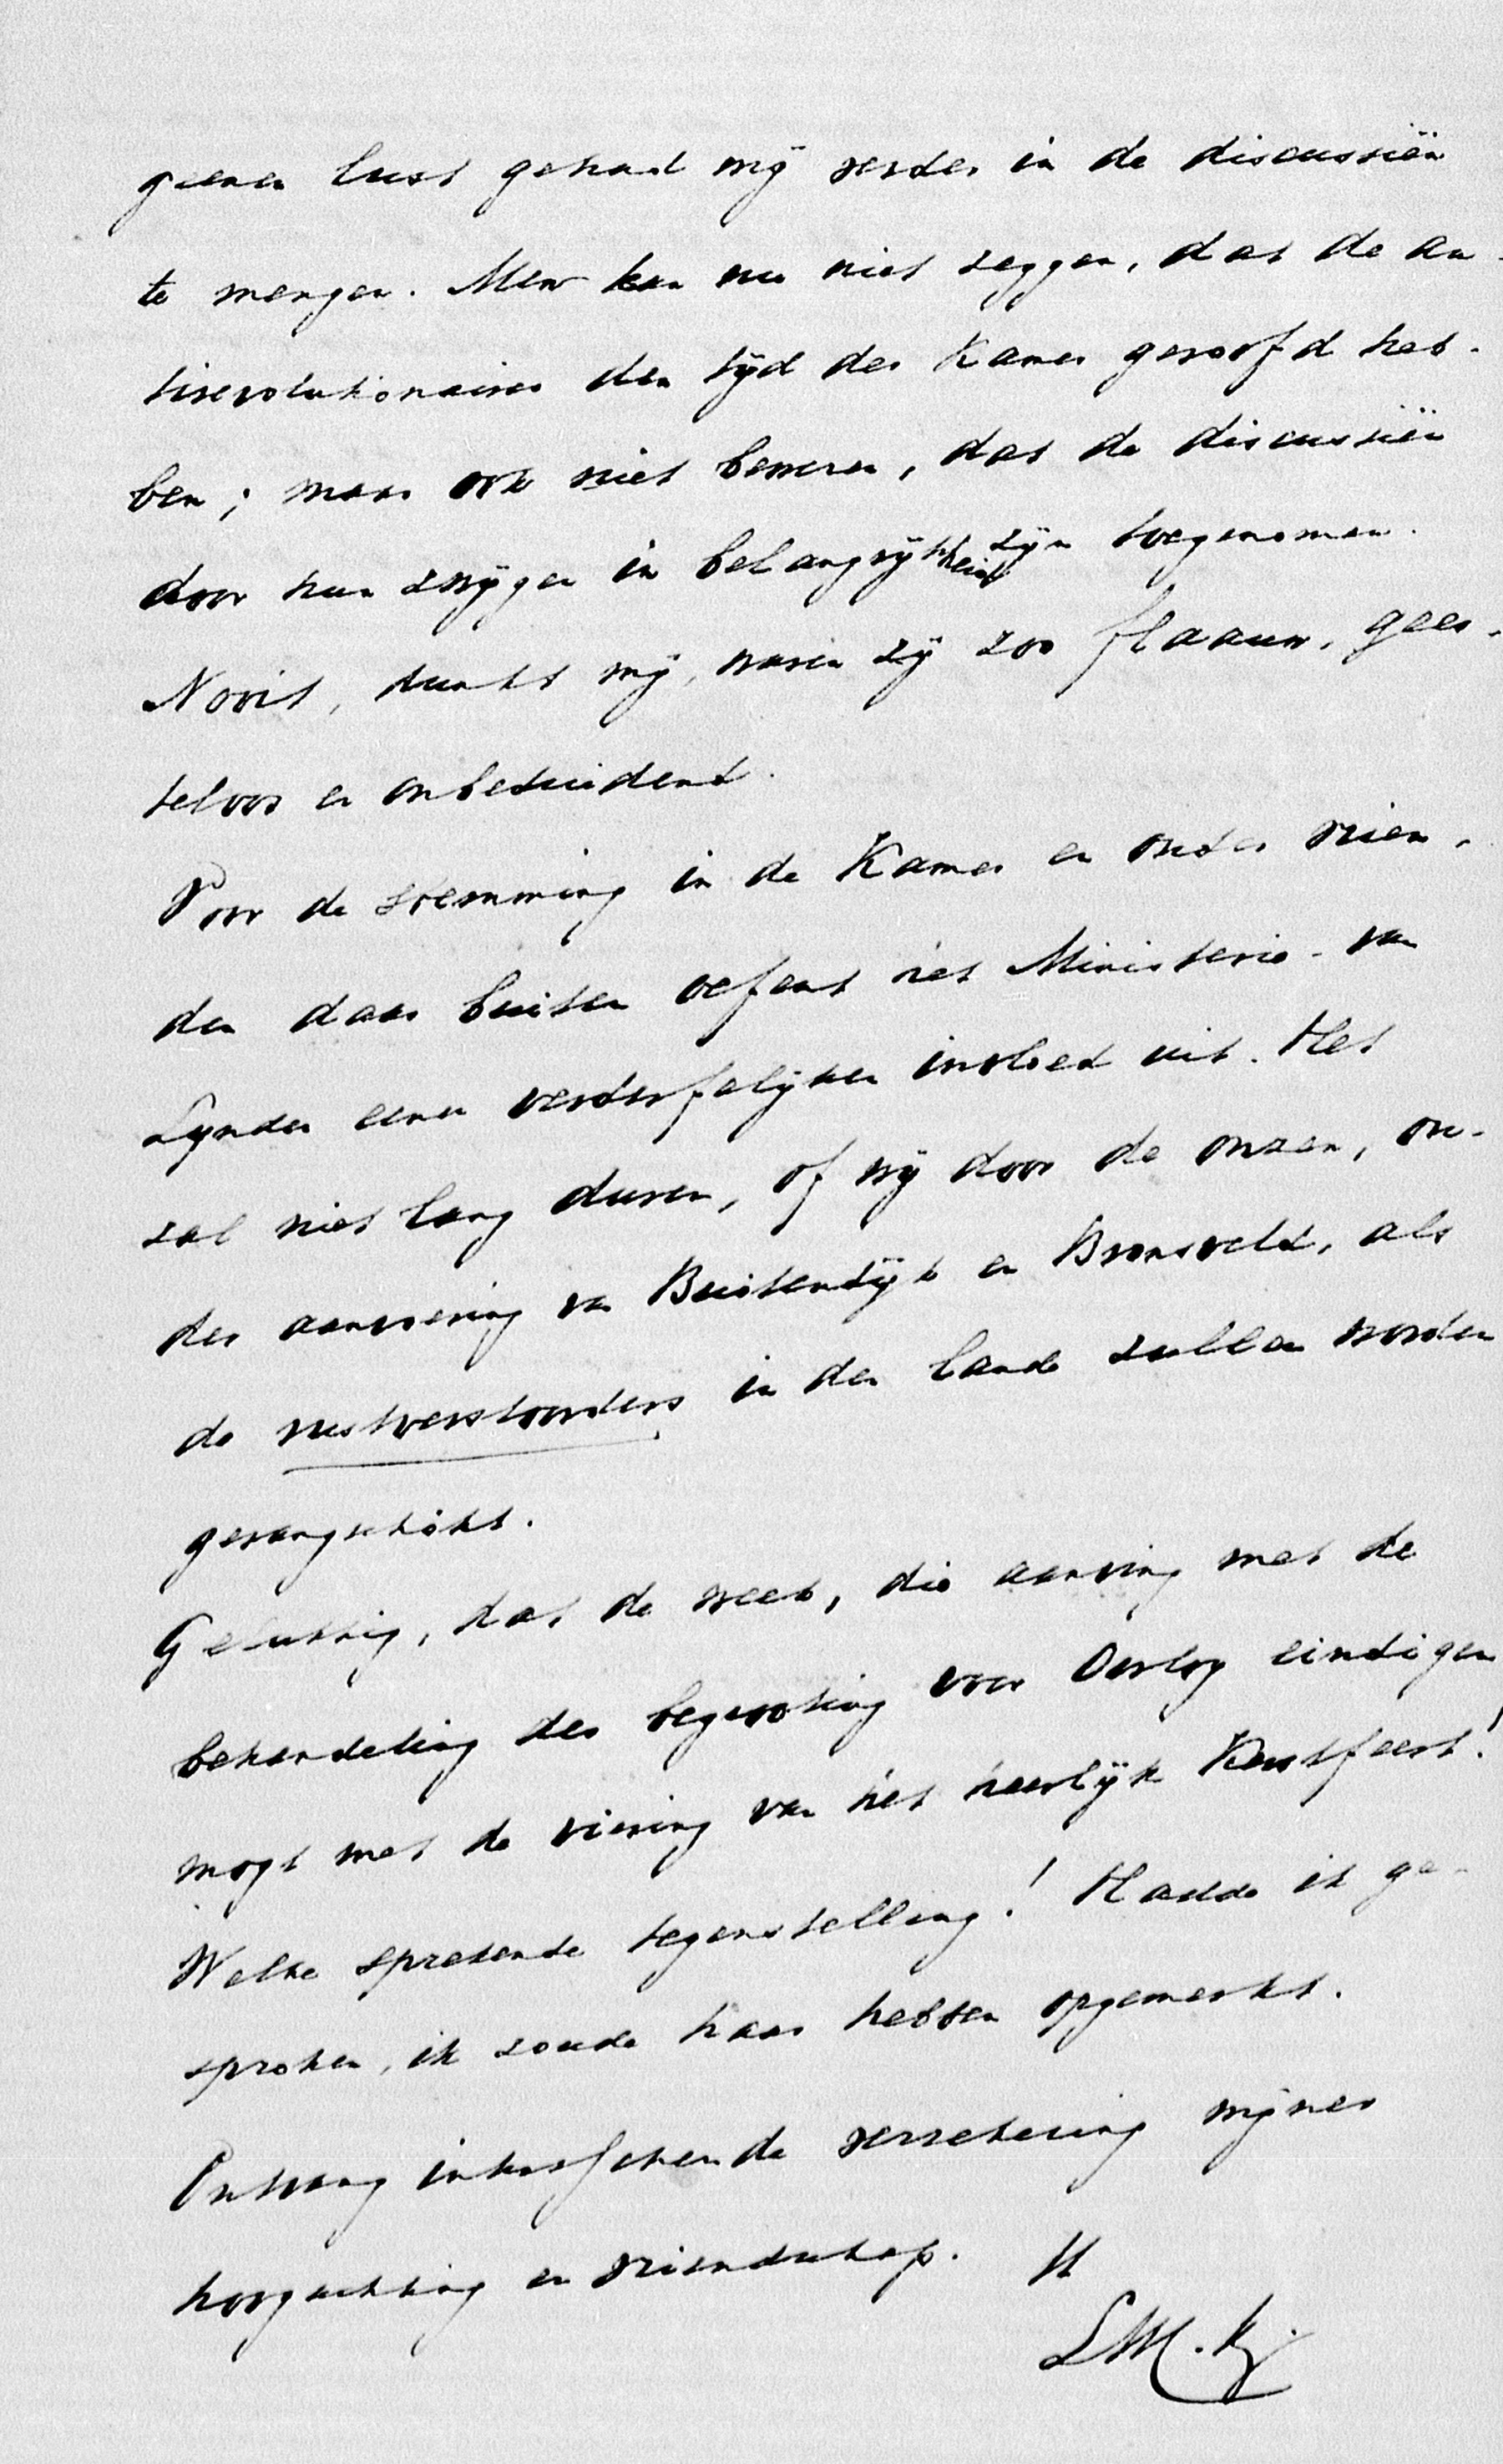 geenen lust gehad mij verder in de discussiën
te mengen. Men kan nu niet zeggen, dat de an-
tirevolutionairen den tijd der Kamer geroofd heb-
ben; maar ook niet beweren, dat de discussiën
door hun zwijgen in belangrijkheid zijn toegenomen.
Nooit, dunkt mij, waren zij zoo flaauw, gees-
teloos en onbeduidend.
Voor de stemming in de Kamer en onder vrien-
den daar buiten oefent het Ministerie-van
Lynden eenen verderfelijken invloed uit. Het
zal niet lang duren, of wij door de onzen, on-
der aanvoering van Buitendijk en Bronsveld, als
de rustverstoorders in den lande zullen worden
gerangschikt.
Gelukkig, dat de week, die aanving met de
behandeling der begrooting voor Oorlog eindigen
mogt met de viering van het heerlijk Kerstfeest!
Welke sprekende tegenstelling! Hadde ik ge-
sproken, ik zoude haar hebben opgemerkt.
Ontvang intusschen de verzekering mijner
hoogachting en vriendschap.